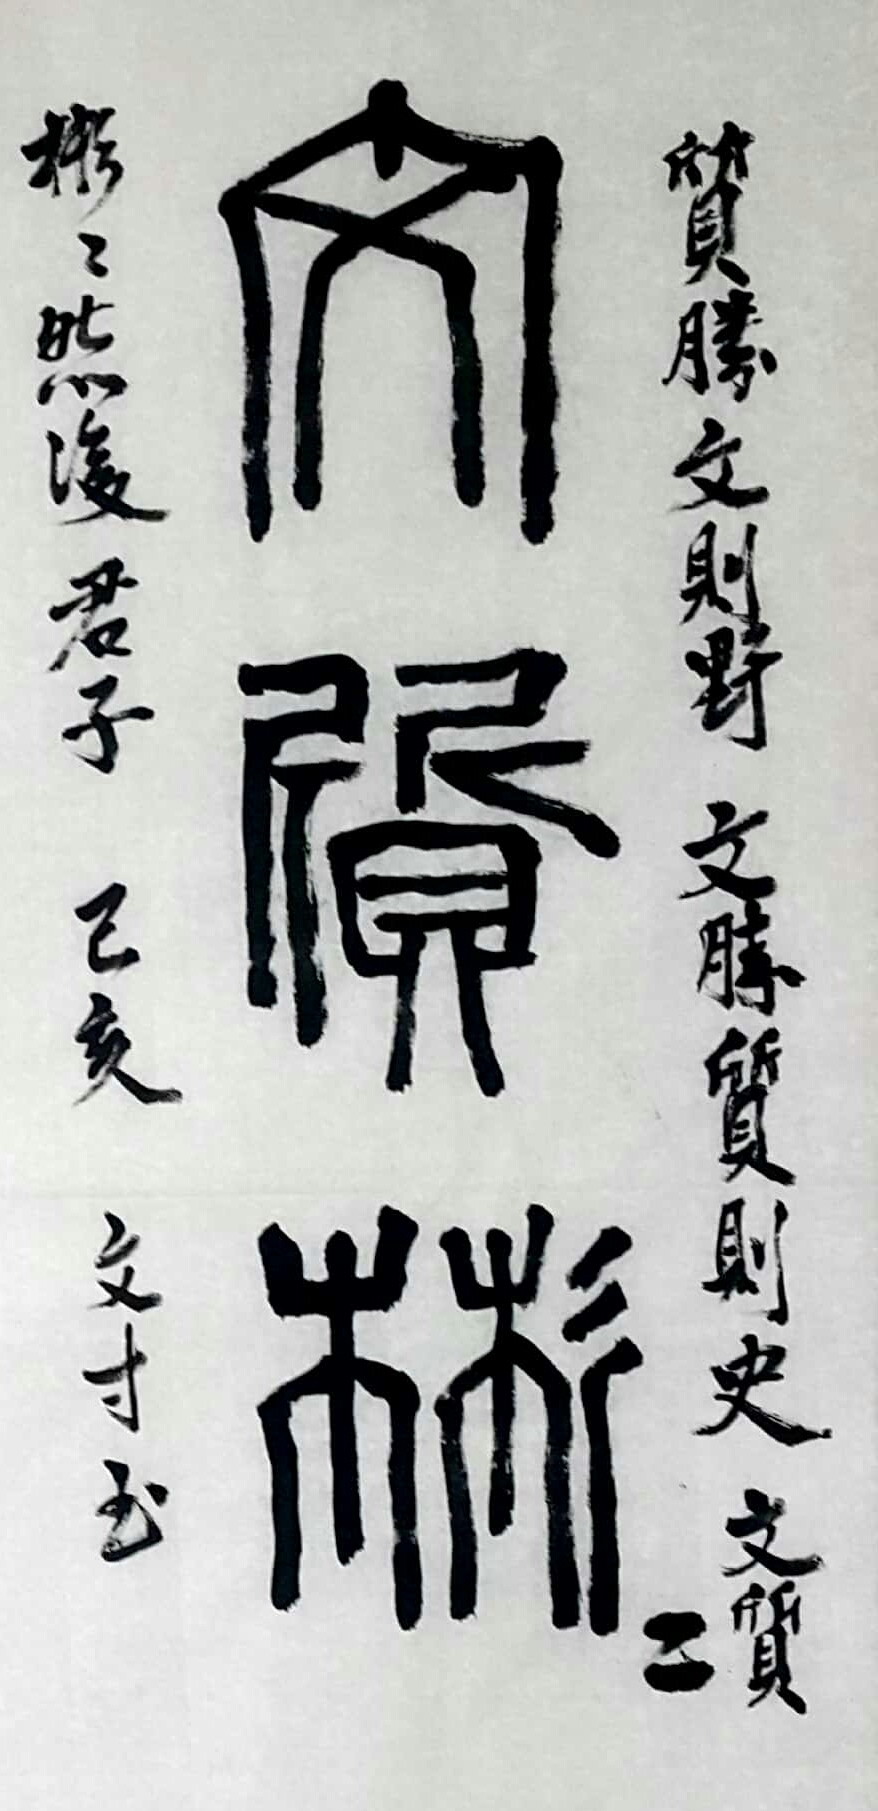 質勝文則野 文勝質則史 文質
文質彬二
彬〻然後君子 己亥 文寸